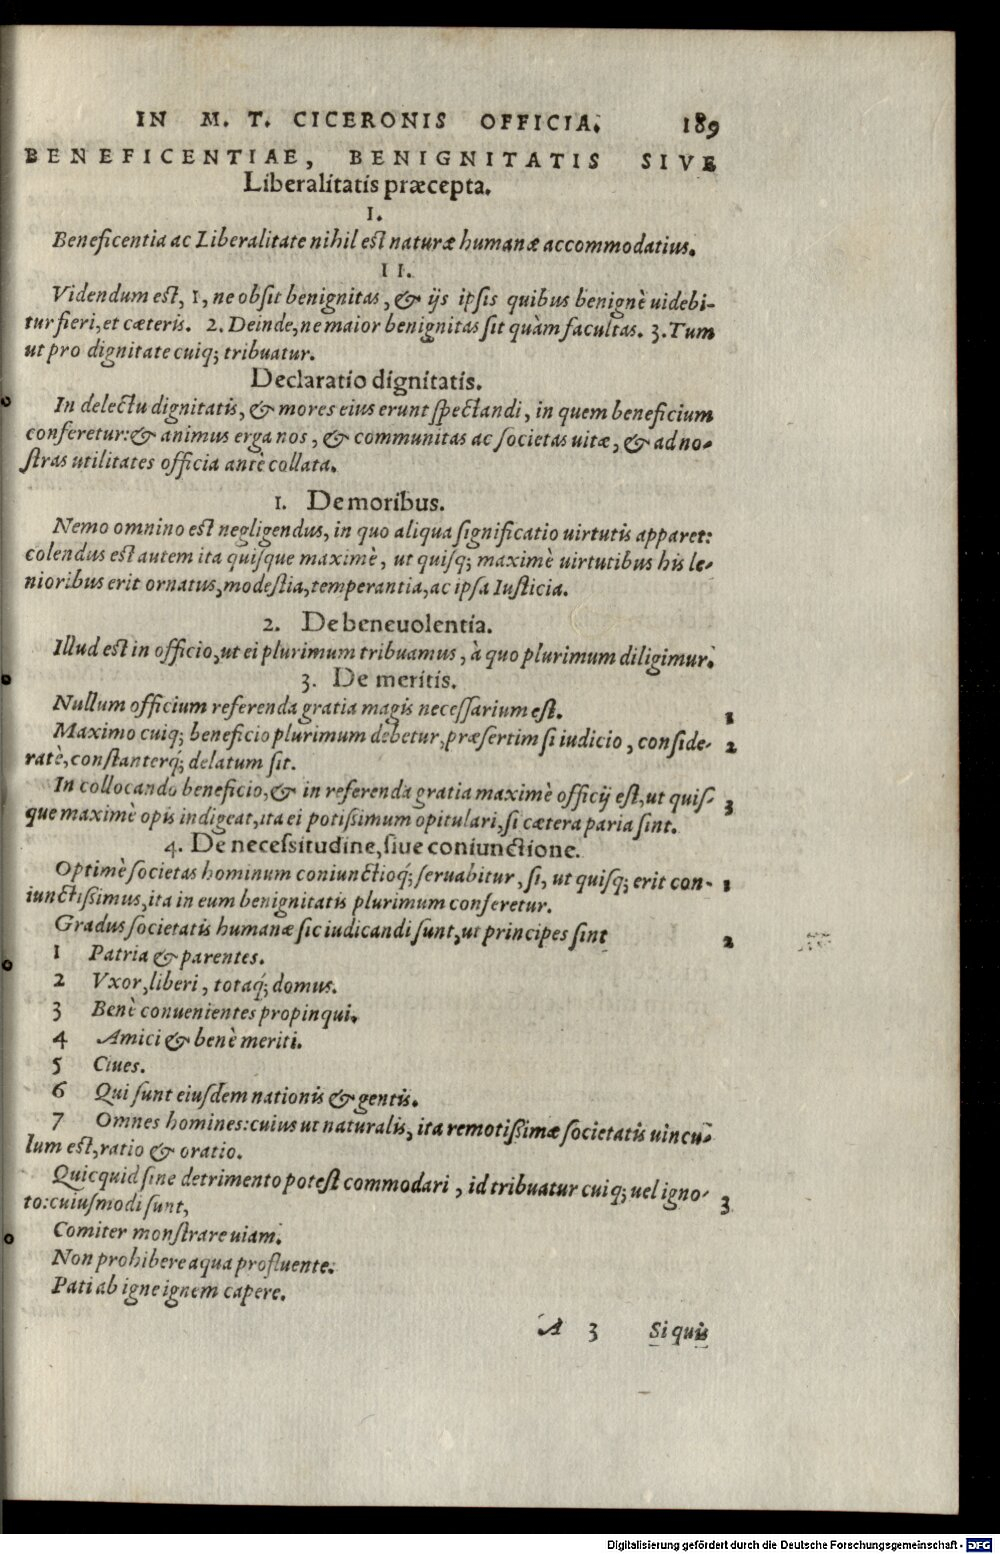 IN M. T. CICERONIS OFFICIA. 189
BENEFICENTIAE, BENIGNITATIS SIVE
Liberalitatis præcepta.
I.
Beneficentia ac Liberalitate nihil est naturæ humanæ accommodatius.
II.
Videndum est, 1, ne obsit benignitas, & ijs ipsis quibus benignè uidebi-
tur fieri, et cæteris. 2. Deinde, ne maior benignitas sit quàm facultas. 3. Tum
ut pro dignitate cuiq; tribuatur.
Declaratio dignitatis.
In delectu dignitatis, & mores eius erunt spectandi, in quem beneficium
conferetur: & animus erga nos, & communitas ac societas uitæ, & ad no-
stras utilitates officia antè collata.
1. De moribus.
Nemo omnino est negligendus, in quo aliqua significatio uirtutis apparet:
colendus est autem ita quisque maximè, ut quisq; maximè uirtutibus his le-
nioribus erit ornatus, modestia, temperantia, ac ipsa Iusticia.
2. De beneuolentia.
Illud est in officio, ut ei plurimum tribuamus, à quo plurimum diligimur.
3. De meritis.
Nullum officium referenda gratia magis necessarium est. 1
Maximo cuiq; beneficio plurimum debetur, præsertim si iudicio, conside- 2
ratè, constanterq́; delatum sit.
In collocando beneficio, & in referenda gratia maximè officij est, ut quis- 3
que maximè opis indigeat, ita ei potißimum opitulari, si cætera paria sint.
4. De necessitudine, siue coniunctione.
Optimè societas hominum coniunctioq́; seruabitur, si, ut quisq; erit con- 1
iunctißimus, ita in eum benignitatis plurimum conferetur.
Gradus societatis humanæ sic iudicandi sunt, ut principes sint 2
1 Patria & parentes.
2 Vxor, liberi, totaq́; domus.
3 Benè conuenientes propinqui.
4 Amici & benè meriti.
5 Ciues.
6 Qui sunt eiusdem nationis & gentis.
7 Omnes homines: cuius ut naturalis, ita remotißimæ societatis uincu-
lum est, ratio & oratio.
Quicquid sine detrimento potest commodari, id tribuatur cuiq; uel igno- 3
to: cuiusmodi sunt,
Comiter monstrare uiam.
Non prohibere aqua profluente.
Pati ab igne ignem capere.
A 3 Si quis
Digitalisierung gefördert durch die Deutsche Forschungsgemeinschaft - DFG